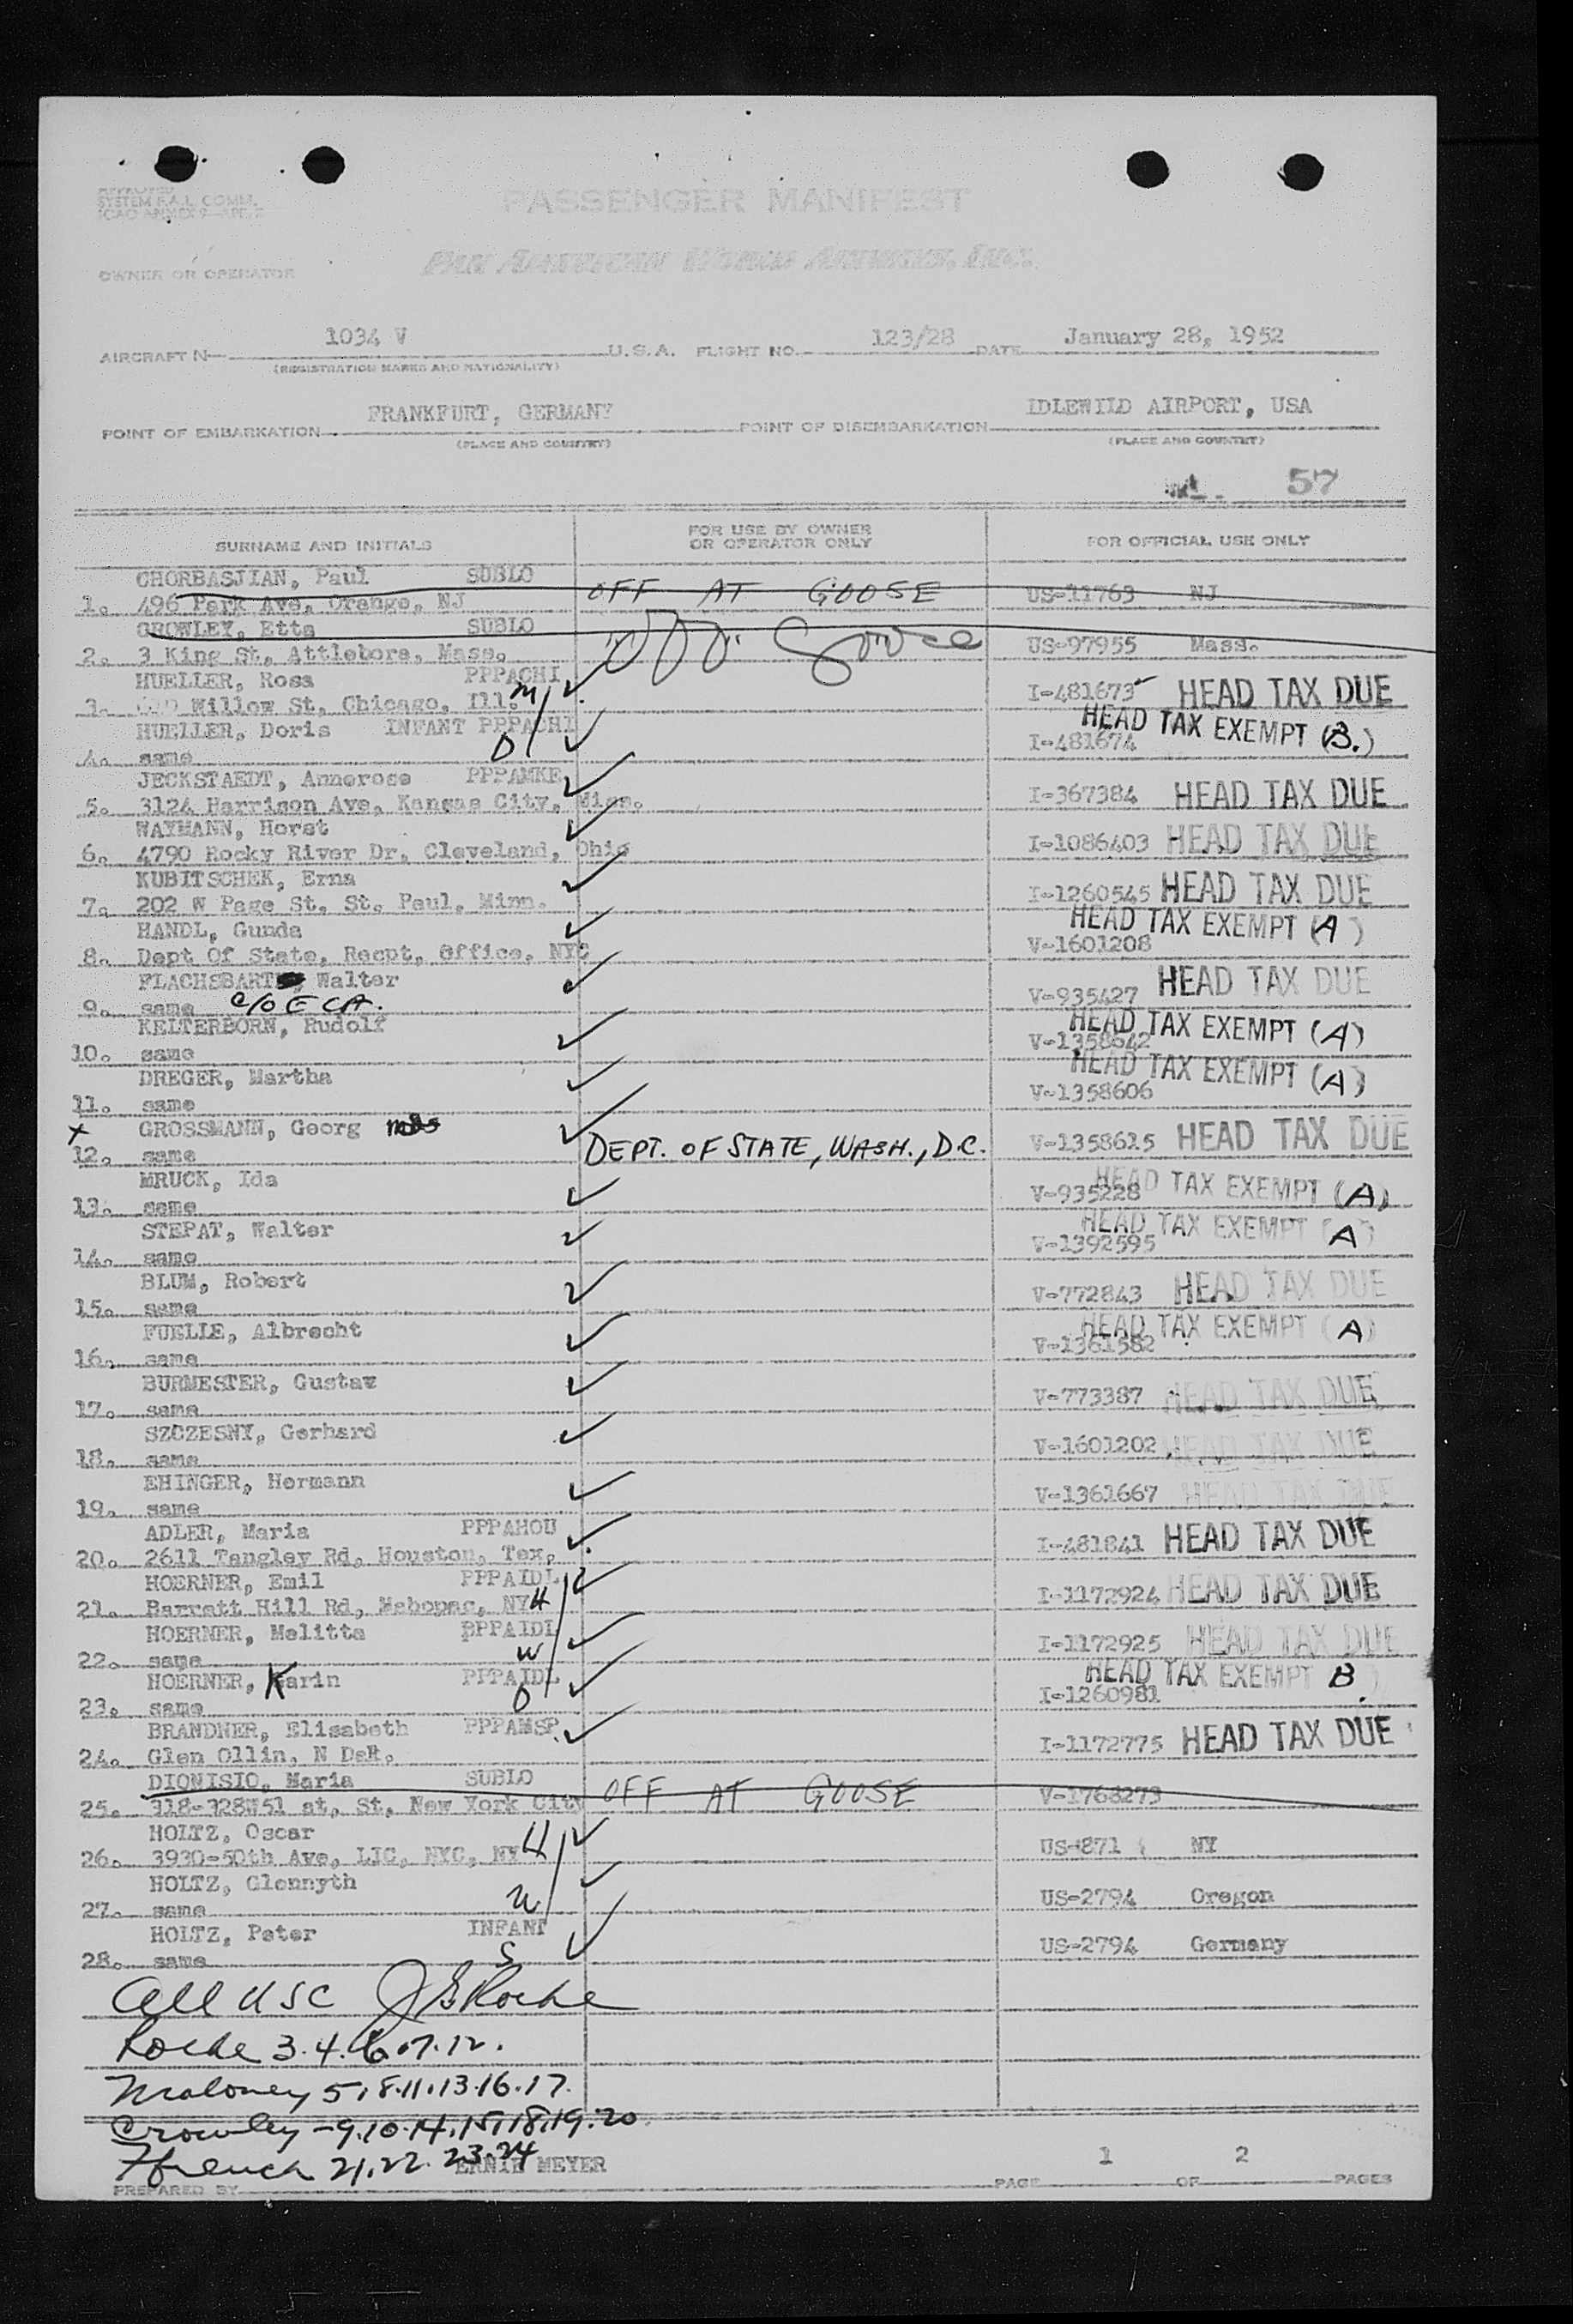 APPROVED
SYSTEM F.A.L. COMM.
ICAO ANNEX 9-APP.
PASSENGER MANIFEST
PAN AMERICAN WORLD AIRWAYS, INC.
OWNER OR OPERATOR
1034 V 123/28 January 28, 1952
AIRCRAFT N- U.S.A. FLIGHT NO. DATE
(REGISTRATION MARKS AND NATIONALITY)
FRANKFURT, GERMANY IDLEWILD AIRPORT, USA
POINT OF EMBARKATION POINT OF DISEMBARKATION
(PLACE AND COUNTRY) (PLACE AND COUNTRY)
57
SURNAME AND INITIALS FOR USE BY OWNER OR OPERATOR ONLY FOR OFFICIAL USE ONLY
CHORBASJIAN, Paul SUBLO
1. 496 Park Ave, Orange, NJ OFF AT GOOSE US-11763 NJ
CROWLEY, Etta SUBLO
2. 3 King St, Attleboro, Mass. Off Goose US-97955 Mass.
HUELLER, Rosa PPPACHI
3. Willow St, Chicago, Ill. M I-481673 HEAD TAX DUE
HUELLER, Doris INFANT PPPACHI HEAD TAX EXEMPT (B.)
4. same D I-481674
JECKSTAEDT, Annerose PPPAMKE
5. 3124 Harrison Ave, Kansas City, Miss. I-367384 HEAD TAX DUE
WAXMANN, Horst
6. 4790 Rocky River Dr, Cleveland, Ohio I-1086403 HEAD TAX DUE
KUBITSCHEK, Erna
7. 202 W Page St, St, Paul, Minn. I-1260545 HEAD TAX DUE
HANDL, Gunda HEAD TAX EXEMPT (A)
8. Dept Of State, Recpt, Office, NYC V-1601208
FLACHSBART, Walter
9. same c/o ECA. V-935427 HEAD TAX DUE
KELTERBORN, Rudolf HEAD TAX EXEMPT (A)
10. same V-1358642
DREGER, Martha HEAD TAX EXEMPT (A)
11. same V-1358606
x GROSSMANN, Georg
12. same DEPT. OF STATE, WASH., D.C. V-1358615 HEAD TAX DUE
MRUCK, Ida HEAD TAX EXEMPT (A)
13. same V-935228
STEPAT, Walter HEAD TAX EXEMPT (A)
14. same V-1392595
BLUM, Robert
15. same V-772843 HEAD TAX DUE
FUELLE, Albrecht HEAD TAX EXEMPT (A)
16. same V-1361582
BURMESTER, Gustav
17. same V-773387 HEAD TAX DUE
SZCZESNY, Gerhard
18. same V-1601202 HEAD TAX DUE
EHINGER, Hermann
19. same V-1361667 HEAD TAX DUE
ADLER, Maria PPPAHOU
20. 2611 Tangley Rd, Houston, Tex, I-481841 HEAD TAX DUE
HOERNER, Emil PPPAIDL
21. Barratt Hill Rd, Mahopac, NY H I-1172924 HEAD TAX DUE
HOERNER, Melitta PPPAIDL
22. same W I-1172925 HEAD TAX DUE
HOERNER, Karin PPPAIDL HEAD TAX EXEMPT B
23. same D I-1260981
BRANDNER, Elisabeth PPPAMSP
24. Glen Ollin, N Dak, I-1172775 HEAD TAX DUE
DIONISIO, Maria SUBLO
25. 318-328W51 st, St, New York City OFF AT GOOSE V-1768273
HOLTZ, Oscar
26. 3930-50th Ave, LIC, NYC, NY H US-871 NY
HOLTZ, Glennyth
27. same W US-2794 Oregon
HOLTZ, Peter INFANT
28. same S US-2794 Germany
All USC J G Roche
Roche 3.4.6.7.12.
Maloney 5,8.11.13.16.17.
Crowley -9.10.14.15.18.19.20
Ffrench 21.22.23.24
ERNIE MEYER 1 2
PREPARED BY PAGE OF PAGES